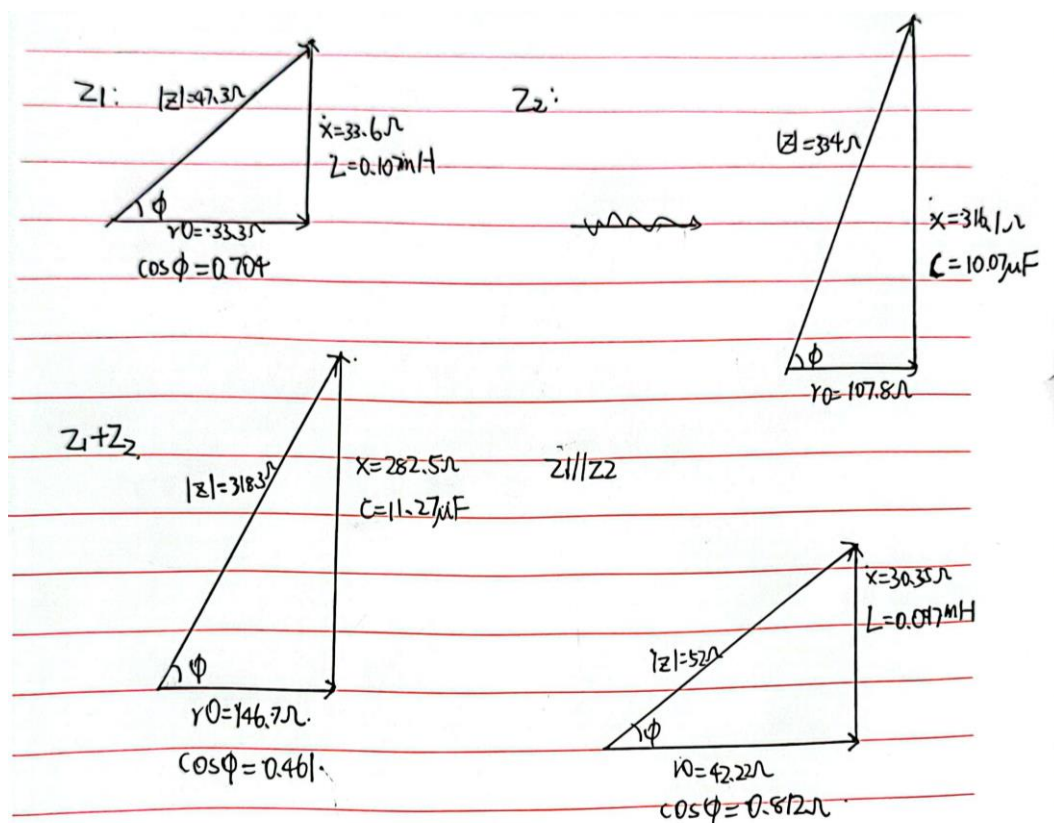 Z1:
|Z|=47.3Ω
x=33.6Ω
L=0.107mH
ϕ
r0=33.3Ω
cosϕ=0.704
Z2:
|Z|=334Ω
x=316.1Ω
C=10.07μF
ϕ
r0=107.8Ω
Z1+Z2
|Z|=318.3Ω
x=282.5Ω
C=11.27μF
ϕ
r0=146.7Ω.
cosϕ=0.461.
Z1//Z2
|Z|=52Ω
x=30.35Ω
L=0.097mH
ϕ
r0=42.22Ω
cosϕ=0.812Ω